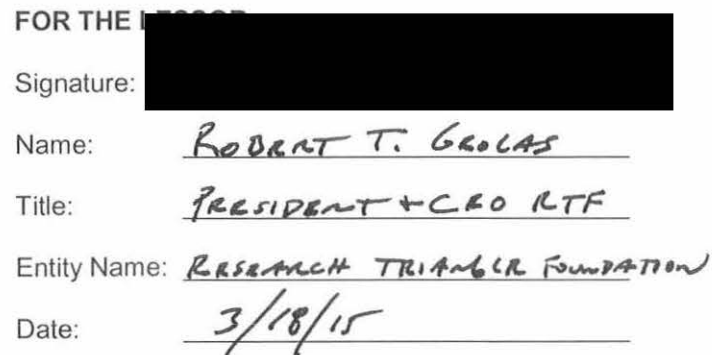 FOR THE LESSOR
Signature:
Name: ROBERT T. GEOLAS
Title: PRESIDENT + CEO RTF
Entity Name: RESEARCH TRIANGLE FOUNDATION
Date: 3/18/15